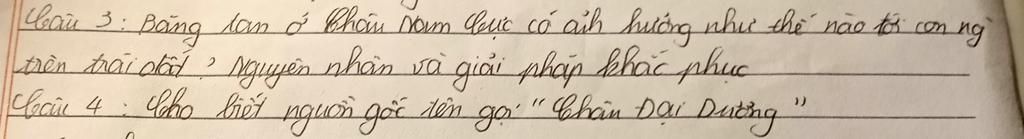 Câu 3: Băng tan ở Châu Nam Cực có ảnh hưởng như thế nào tới con ng
trên trái đất? Nguyên nhân và giải pháp khắc phục
Câu 4: Cho biết nguồn gốc tên gọi "Châu Đại Dương"